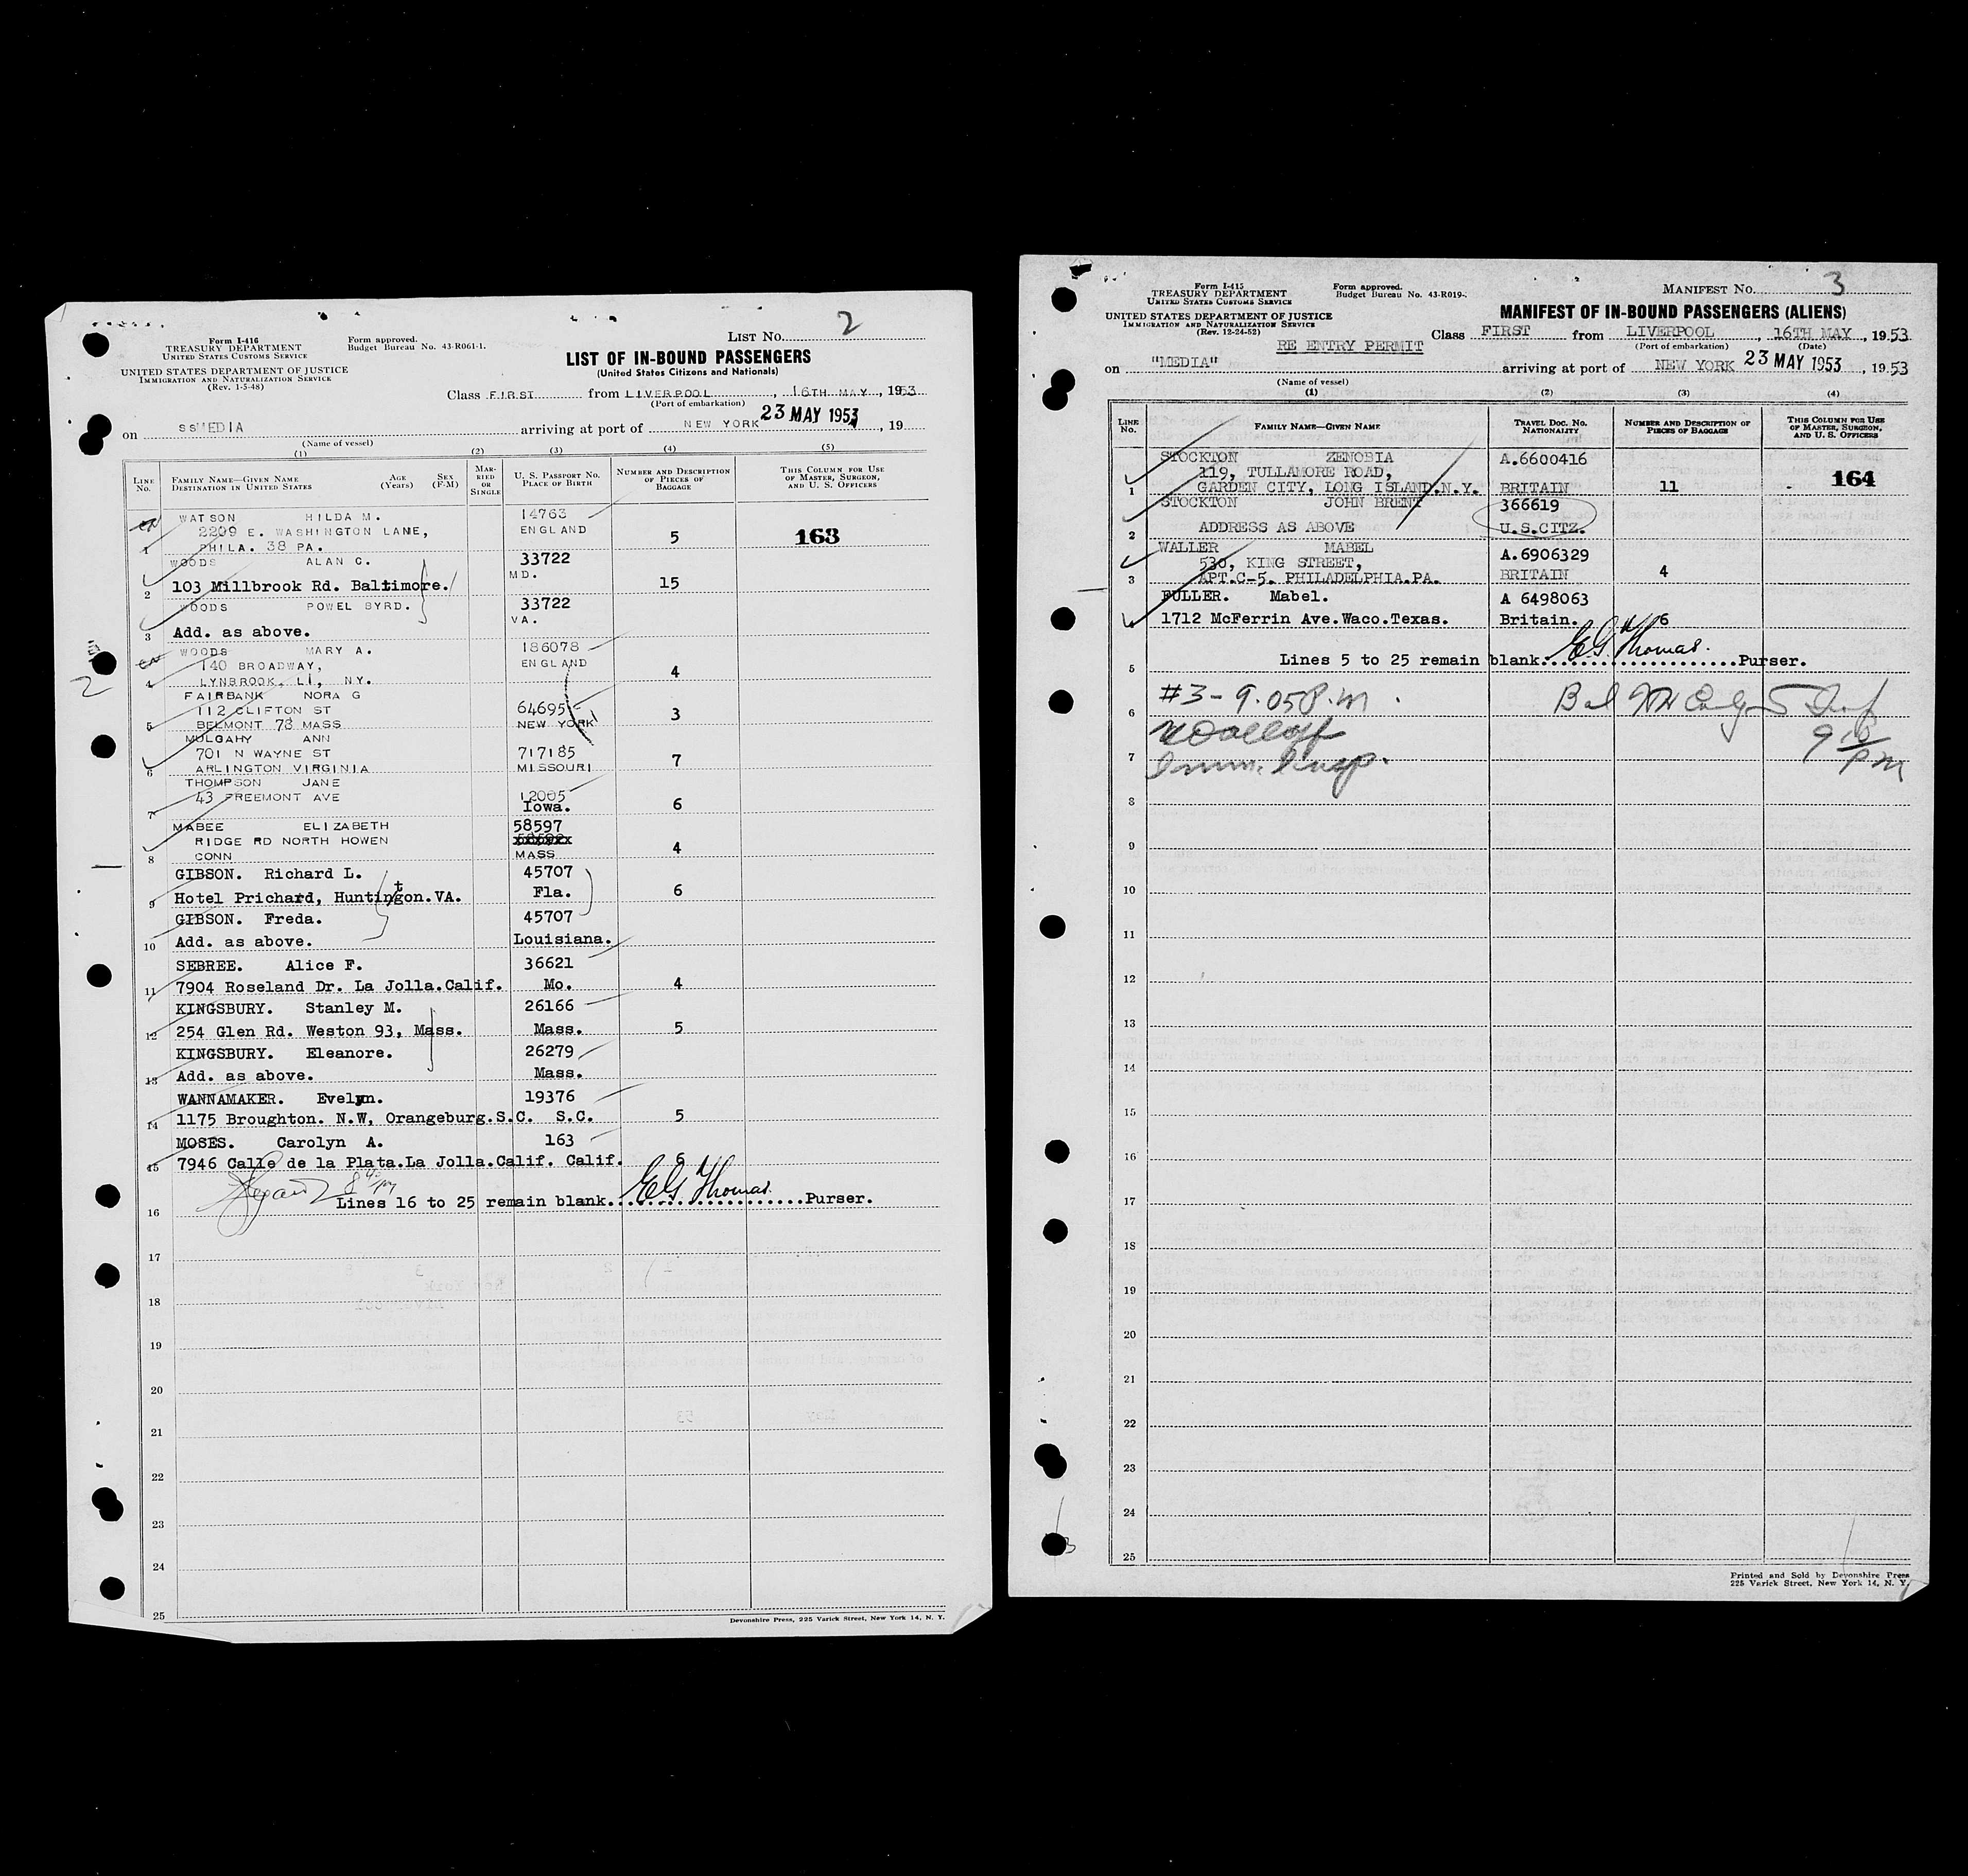 2
LIST No.
Form I-416
TREASURY DEPARTMENT
UNITED STATES CUSTOMS SERVICE
Form approved.
Budget Bureau No. 43-R061-1.
UNITED STATES DEPARTMENT OF JUSTICE
IMMIGRATION AND NATURALIZATION SERVICE
(Rev. 1-5-48)
LIST OF IN-BOUND PASSENGERS
(United States Citizens and Nationals)
Class FIRST from LIVERPOOL, 16TH MAY, 1953
(Port of embarkation)
23 MAY 1953
on SSMEDIA arriving at port of NEW YORK, 19
(Name of vessel)
(1) (2) (3) (4) (5)
LINE No. FAMILY NAME—GIVEN NAME DESTINATION IN UNITED STATES AGE (Years) SEX (F-M) MARRIED OR SINGLE U. S. PASSPORT NO. PLACE OF BIRTH NUMBER AND DESCRIPTION OF PIECES OF BAGGAGE THIS COLUMN FOR USE OF MASTER, SURGEON, AND U. S. OFFICERS
WATSON HILDA M. 14763
2209 E. WASHINGTON LANE, ENGLAND
1 PHILA. 38 PA. 5 163
WOODS ALAN C. 33722
MD.
2 103 Millbrook Rd. Baltimore. 15
WOODS POWEL BYRD. 33722
VA.
3 Add. as above.
WOODS MARY A. 186078
140 BROADWAY, ENGLAND
4 LYNBROOK, LI, NY. 4
FAIRBANK NORA G
112 CLIFTON ST 64695
5 BELMONT 78 MASS NEW YORK 3
MULGAHY ANN
701 N WAYNE ST 717185
6 ARLINGTON VIRGINIA MISSOURI 7
THOMPSON JANE
43 FREEMONT AVE 12005
7 Iowa. 6
MABEE ELIZABETH 58597
RIDGE RD NORTH HOWEN
8 CONN MASS 4
GIBSON. Richard L. 45707
9 Hotel Prichard, Huntington.VA. Fla. 6
GIBSON. Freda. 45707
10 Add. as above. Louisiana.
SEBREE. Alice F. 36621
11 7904 Roseland Dr. La Jolla.Calif. Mo. 4
KINGSBURY. Stanley M. 26166
12 254 Glen Rd. Weston 93, Mass. Mass. 5
KINGSBURY. Eleanore. 26279
13 Add. as above. Mass.
WANNAMAKER. Evelyn. 19376
14 1175 Broughton. N.W, Orangeburg.S.C. S.C. 5
MOSES. Carolyn A. 163
15 7946 Calle de la Plata.La Jolla.Calif. Calif. 6
16 Lines 16 to 25 remain blank. EG Thomas. Purser.
17
18
19
20
21
22
23
24
25
Devonshire Press, 225 Varick Street, New York 14, N. Y.
Form I-415
TREASURY DEPARTMENT
UNITED STATES CUSTOMS SERVICE
Form approved.
Budget Bureau No. 43-R019-
MANIFEST No. 3
UNITED STATES DEPARTMENT OF JUSTICE
IMMIGRATION AND NATURALIZATION SERVICE
(Rev. 12-24-52)
MANIFEST OF IN-BOUND PASSENGERS (ALIENS)
RE ENTRY PERMIT
Class FIRST from LIVERPOOL, 16TH MAY, 1953
(Port of embarkation) (Date)
on "MEDIA" arriving at port of NEW YORK 23 MAY 1953, 1953
(Name of vessel)
(1) (2) (3) (4)
LINE No. FAMILY NAME—GIVEN NAME TRAVEL DOC. NO. NATIONALITY NUMBER AND DESCRIPTION OF PIECES OF BAGGAGE THIS COLUMN FOR USE OF MASTER, SURGEON, AND U. S. OFFICERS
STOCKTON ZENOBIA A.6600416
119, TULLAMORE ROAD,
1 GARDEN CITY, LONG ISLAND.N.Y. BRITAIN 11 164
STOCKTON JOHN BRENT 366619
2 ADDRESS AS ABOVE U.S.CITZ.
WALLER MABEL A.6906329
530, KING STREET,
3 APT.C-5. PHILADELPHIA.PA. BRITAIN 4
FULLER. Mabel. A 6498063
4 1712 McFerrin Ave.Waco.Texas. Britain. 6
5 Lines 5 to 25 remain blank. EG Thomas. Purser.
#3 - 9.05 P.M.
6
7 Imm. Insp.
9 10 PM
8
9
10
11
12
13
14
15
16
17
18
19
20
21
22
23
24
25
Printed and Sold by Devonshire Press
225 Varick Street, New York 14, N. Y.